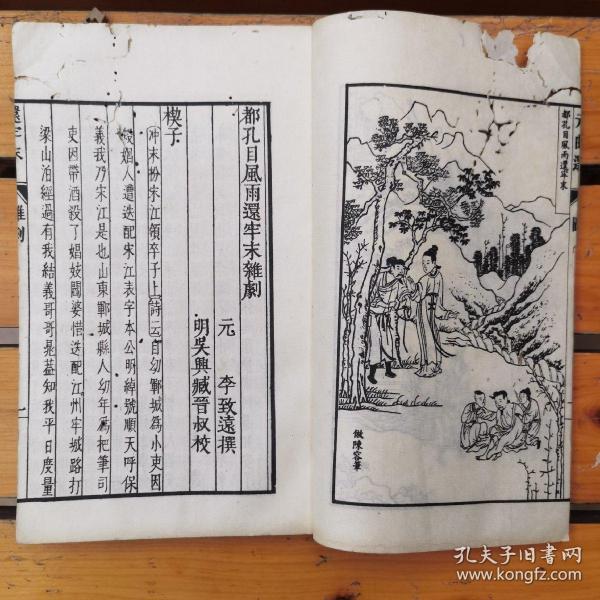 元曲選
圖
都孔目風雨還牢末
倣陳容筆
都孔目風雨還牢末雜劇
元 李致遠撰
明吳興臧晉叔校
楔子
冲末扮宋江領卒子上詩云自幼鄆城爲小吏因
殺娼人遭迭配宋江表字本公明綽號順天呼保
義我乃宋江是也山東鄆城縣人幼年爲把筆司
吏因帶酒殺了娼妓閻婆惜迭配江州牢城路打
梁山泊經過有我結義哥哥晁蓋知我平日度量
還牢末
雜劇
一
孔夫子旧书网
www.kongfz.com